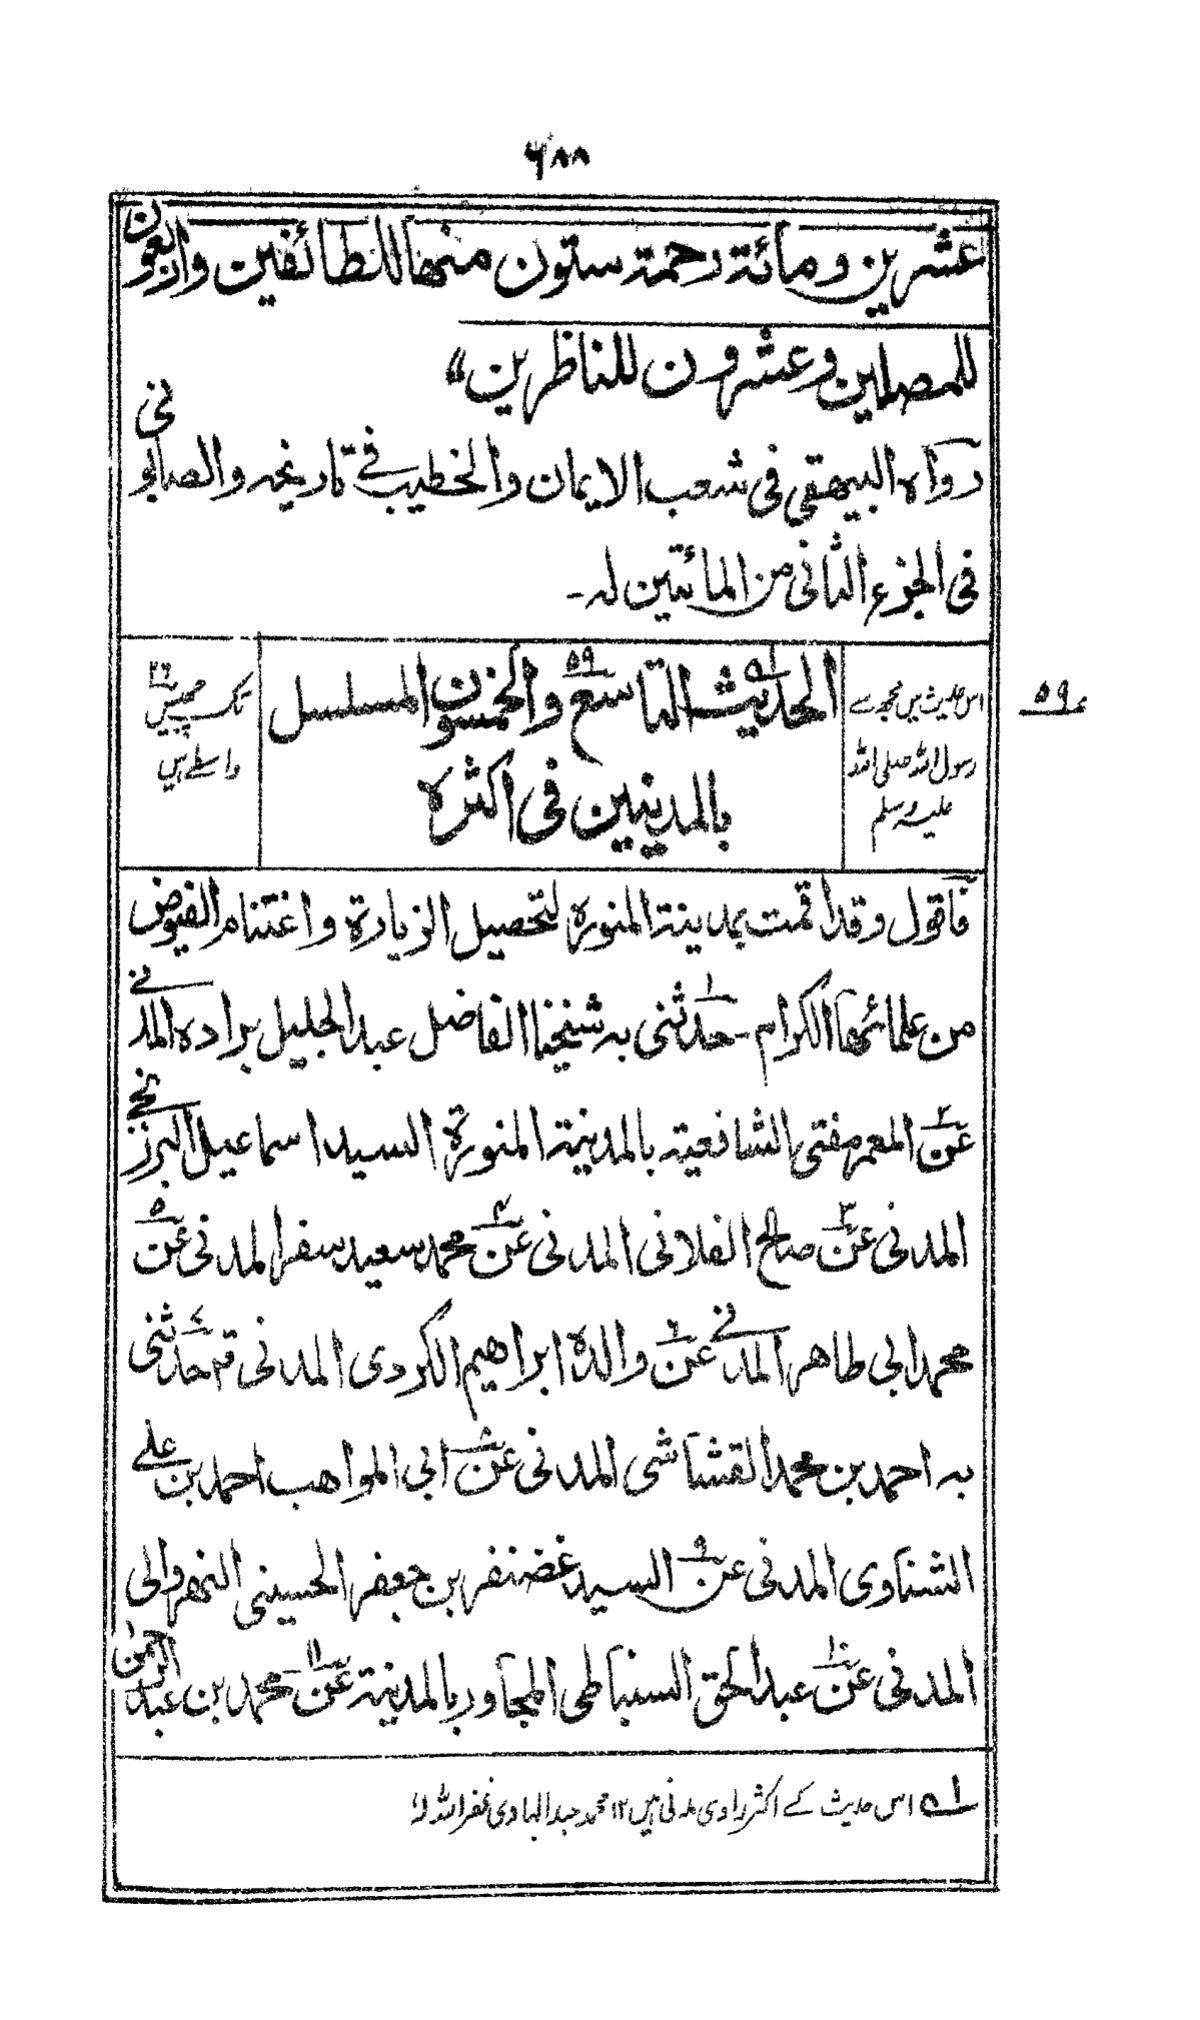 ٦٨٨
عشرين ومائة رحمة ستون منها للطائفين واربعون
للمصلين وعشرون للناظرين"
رواه البيهقي في شعب الايمان والخطيب في تاريخه والصابوني
في الجزء الثاني من المائتين له۔
اس حدیث میں مجھ سے
رسول اللہ صلی اللہ
علیہ وسلم
الحديث التاسع والخمسون المسلسل
بالمدنيين في اكثره
٥٩
١ه
تک چھبیس
٢٦
واسطے ہیں
نمبر ٥٩
فاقول وقد اقمت بمدينة المنورة لتحصيل الزيارة واغتنام الفيوض
من علمائها الكرام۔ حدثنى ١ به شيخنا الفاضل عبد الجليل براده المدني
عن ٢ المعمر مفتي الشافعية بالمدينة المنورة السيد اسماعيل البرزنجي
المدني عن ٣ صالح الفلاني المدني عن ٤ محمد سعيد سفر المدني عن ٥
محمد ابي طاهر المدني عن ٦ والده ابراهيم الكردي المدني قد حدثني ٧
به احمد بن محمد القشاشى المدني عن ٨ ابي المواهب احمد بن علي
الشناوى المدني عن ٩ السيد غضنفر بن جعفر الحسيني النهروالي
المدني عن ١٠ عبد الحق السنباطي المجاور بالمدينة عن ١١ محمد بن عبد الرحمن
١ه اس حدیث کے اکثر راوی مدنی ہیں ١٢ محمد عبد الهادی غفر اللہ لہ